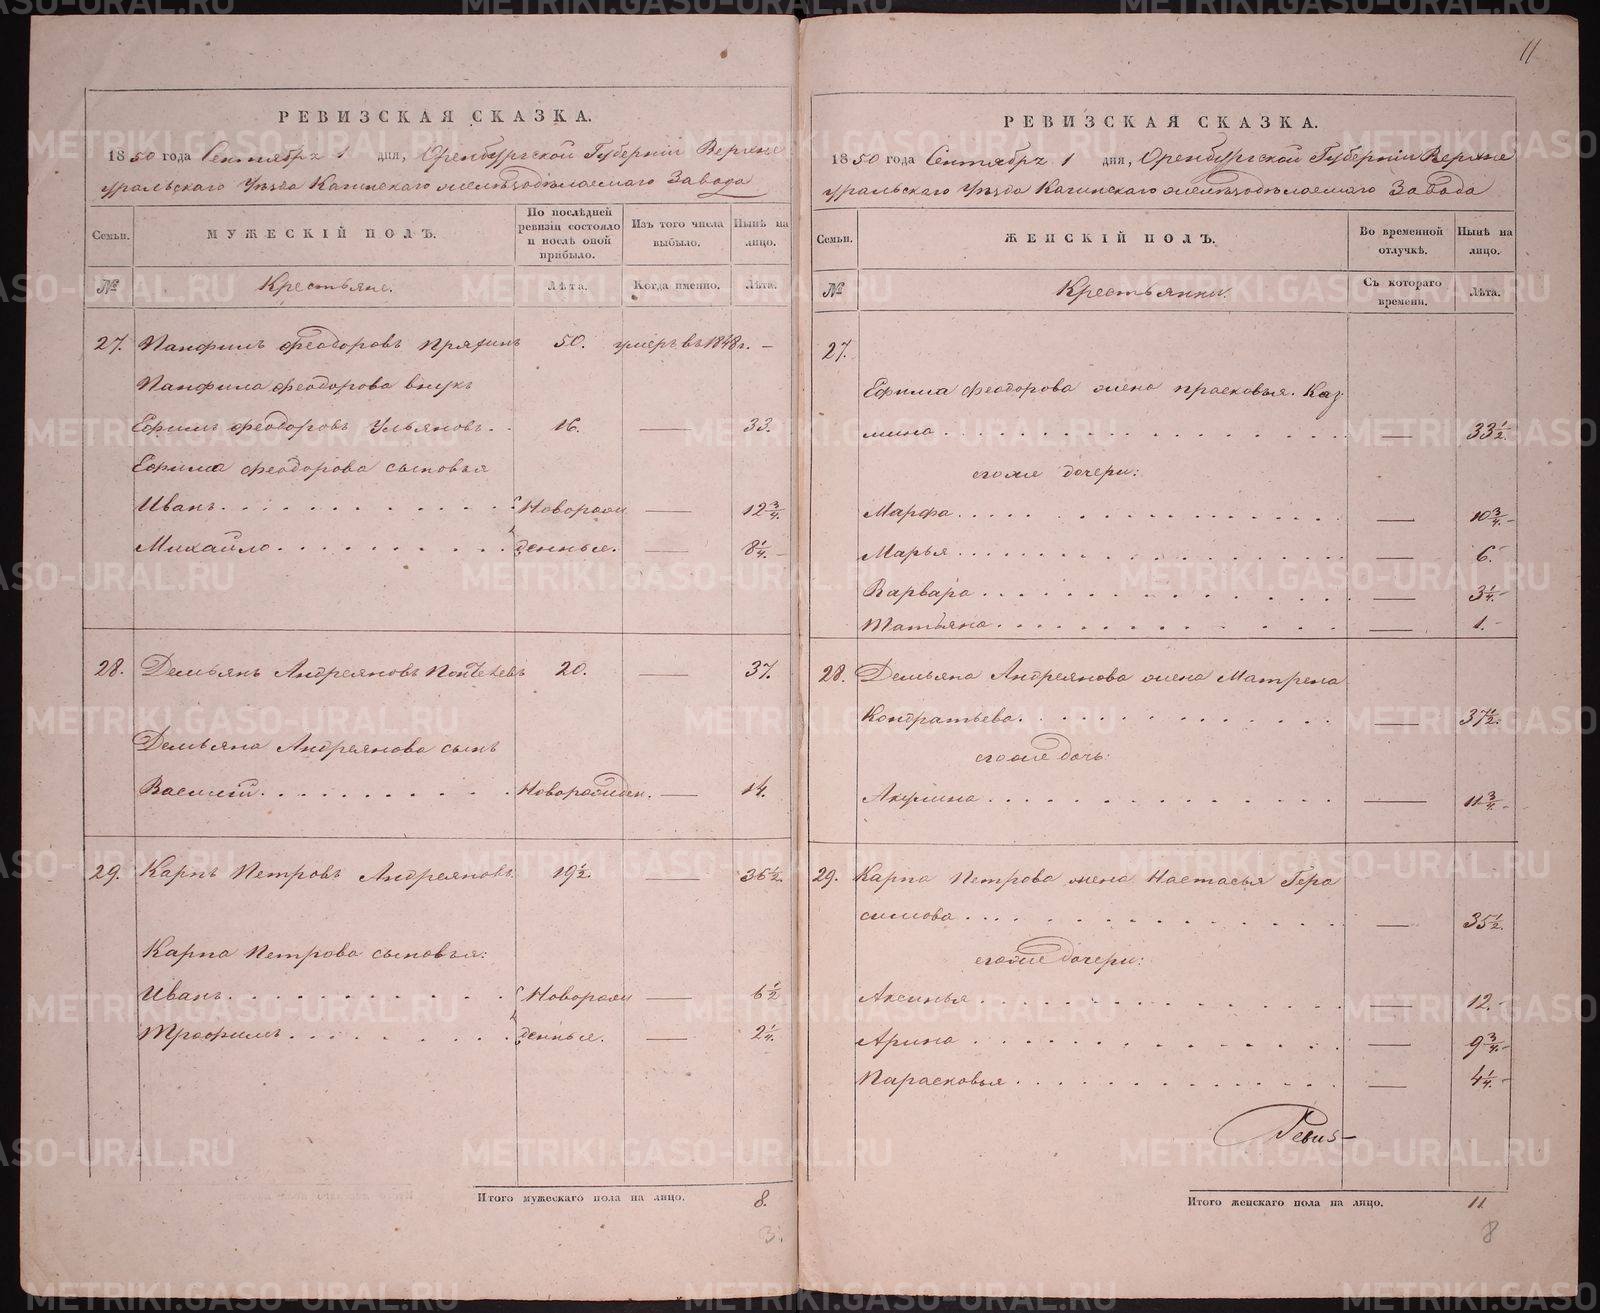 11
РЕВИЗСКАЯ СКАЗКА.
1850 года Сентября 1 дня, Оренбургской Губерніи Верхне
уральскаго Уѣзда Кагинскаго желѣзодѣлаемаго Завода
Семьи.
МУЖЕСКІЙ ПОЛЪ.
По послѣдней ревизіи состояло и послѣ оной прибыло.
Изъ того числа выбыло.
Нынѣ на лицо.
№
Крестьяне.
Лѣта.
Когда именно.
Лѣта.
27. Панфилъ Феодоровъ Пряхинъ 50. умеръ въ 1848 г. –
Панфила Феодорова внукъ
Ефимъ Феодоровъ Ульяновъ. . 16. — 33.
Ефима Феодорова сыновья
Иванъ. Новорож — 12 3/4.
Михайло. денные. — 8 1/4.
28. Демьянъ Андреяновъ 20. — 37.
Демьяна Андреянова сынъ
Василій. Новорожден. — 14.
29. Карпъ Петровъ Андреяновъ. 19 1/2 — 36 1/2
Карпа Петрова сыновья:
Иванъ. Новорож — 6 1/2
Трофимъ. денные. — 2 1/4.
Итого мужескаго пола на лицо. 8.
3.
РЕВИЗСКАЯ СКАЗКА.
1850 года Сентября 1 дня, Оренбургской Губерніи Верхне
уральскаго Уѣзда Кагинскаго желѣзодѣлаемаго Завода
Семьи.
ЖЕНСКІЙ ПОЛЪ.
Во временной отлучкѣ.
Нынѣ на лицо.
№
Крестьянки.
Съ котораго времени.
Лѣта.
27.
Ефима Феодорова жена Прасковья. Каз
мина. — 33 1/2.
егоже дочери:
Марфа. — 10 3/4.
Марья. — 6.
Варвара. — 3 1/4.
Татьяна. — 1.
28. Демьяна Андреянова жена Матрена
Кондратьева. — 37 1/2.
егоже дочь:
Акулина. — 11 3/4.
29. Карпа Петрова жена Настасья Гера
симова. — 35 1/2.
егоже дочери:
Аксинья. — 12.
Арина. — 9 3/4.
Парасковья. — 4 1/4.
Ревиз-
Итого женскаго пола на лицо. 11
8
METRIKI.GASO-URAL.RU